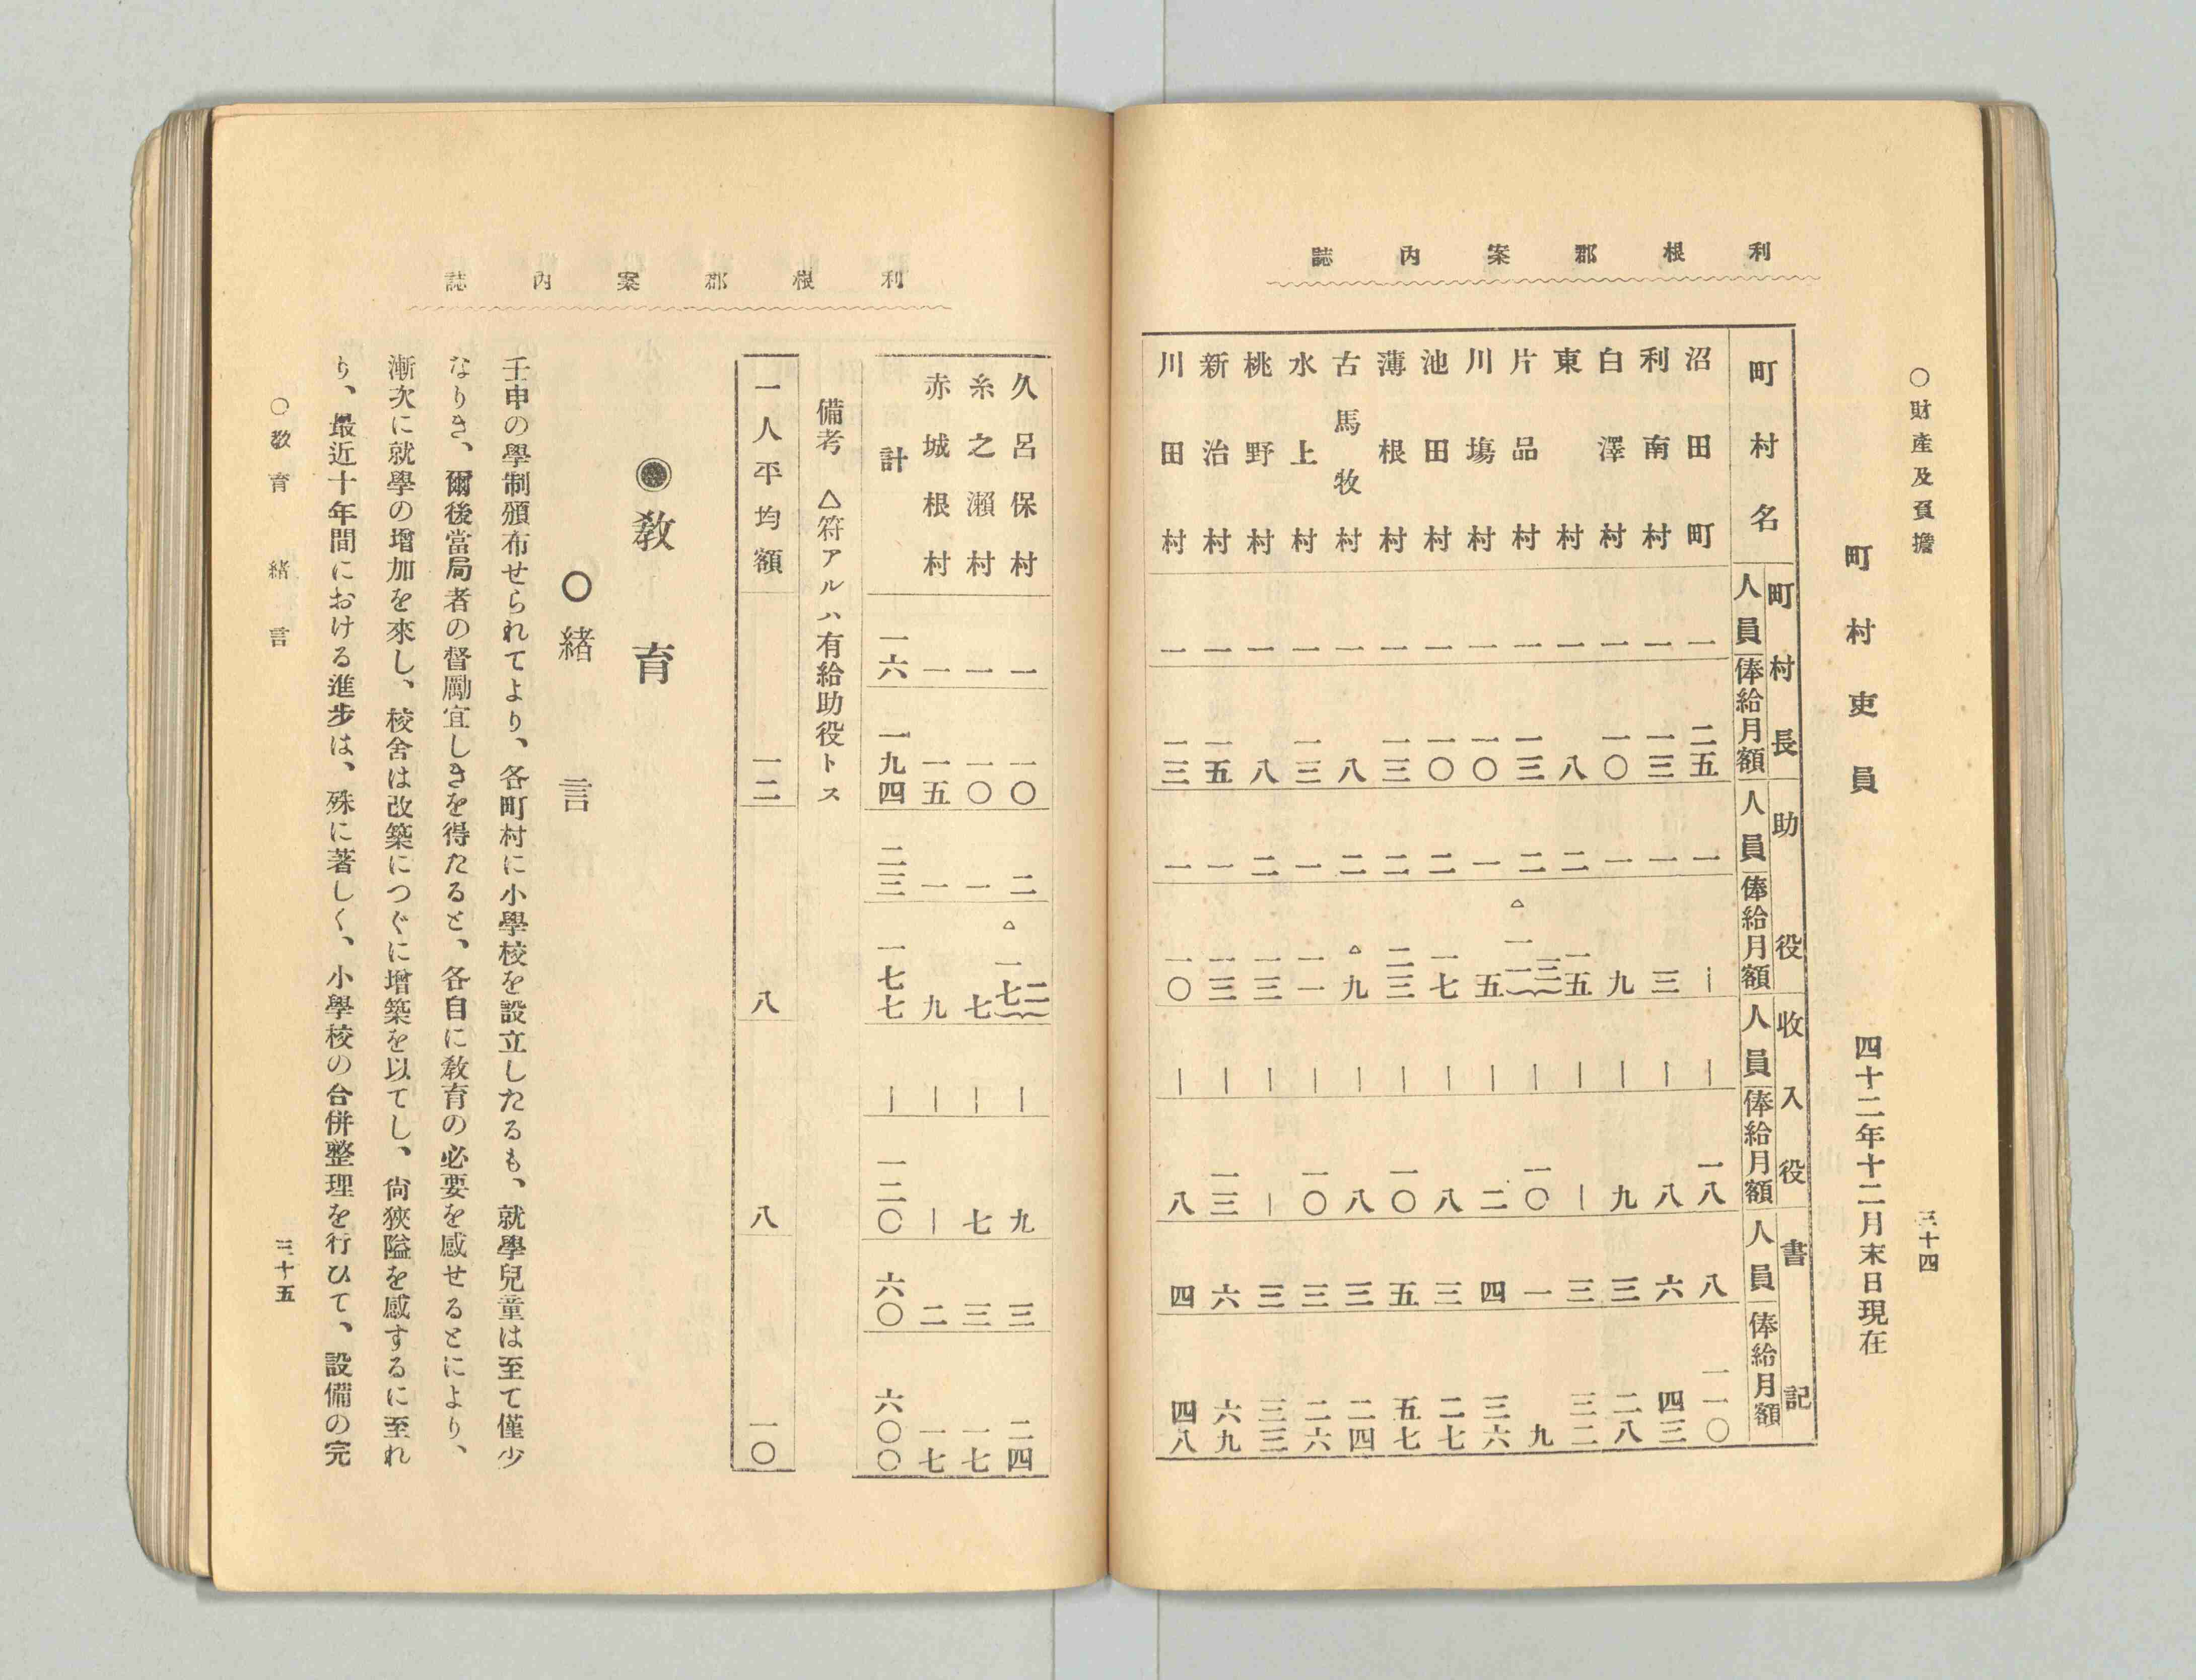 ○財産及負擔
三十四
利根郡案内誌
町村吏員 四十二年十二月末日現在
町村長 助役 收入役 書記
町村名 人員 俸給月額 人員 俸給月額 人員 俸給月額 人員 俸給月額
沼田町 一 二五 一 ｜ ｜ 一八 八 一一〇
利南村 一 一三 一 三 ｜ 八 六 四三
白澤村 一 一〇 一 九 ｜ 九 三 二八
東村 一 八 二 一五 ｜ ｜ 三 三二
片品村 一 一三 二 三 △一二 ｜ 一〇 一 九
川塲村 一 一〇 一 五 ｜ 二 四 三六
池田村 一 一〇 二 一七 ｜ 八 三 二七
薄根村 一 一三 二 二三 ｜ 一〇 五 五七
古馬牧村 一 八 二 △九 ｜ 八 三 二四
水上村 一 一三 一 一一 ｜ 一〇 三 二六
桃野村 一 八 二 一三 ｜ ｜ 三 三三
新治村 一 一五 一 一三 ｜ 一三 六 六九
川田村 一 一三 一 一〇 ｜ 八 四 四八
利根郡案内誌
久呂保村 一 一〇 二 二 △一七 ｜ 九 三 二四
糸之瀨村 一 一〇 一 七 ｜ 七 三 一七
赤城根村 一 一五 一 九 ｜ ｜ 二 一七
計 一六 一九四 二三 一七七 ｜ 一二〇 六〇 六〇〇
備考 △符アルハ有給助役トス
一人平均額 一二 八 八 一〇
◉敎育
○緒言
壬申の學制頒布せられてより、各町村に小學校を設立したるも、就學兒童は至て僅少
なりき、爾後當局者の督勵宜しきを得たると、各自に敎育の必要を感せるとにより、
漸次に就學の增加を來し、校舍は改築につぐに增築を以てし、尙狹隘を感するに至れ
り、最近十年間における進步は、殊に著しく、小學校の合併整理を行ひて、設備の完
○敎育 緒言
三十五